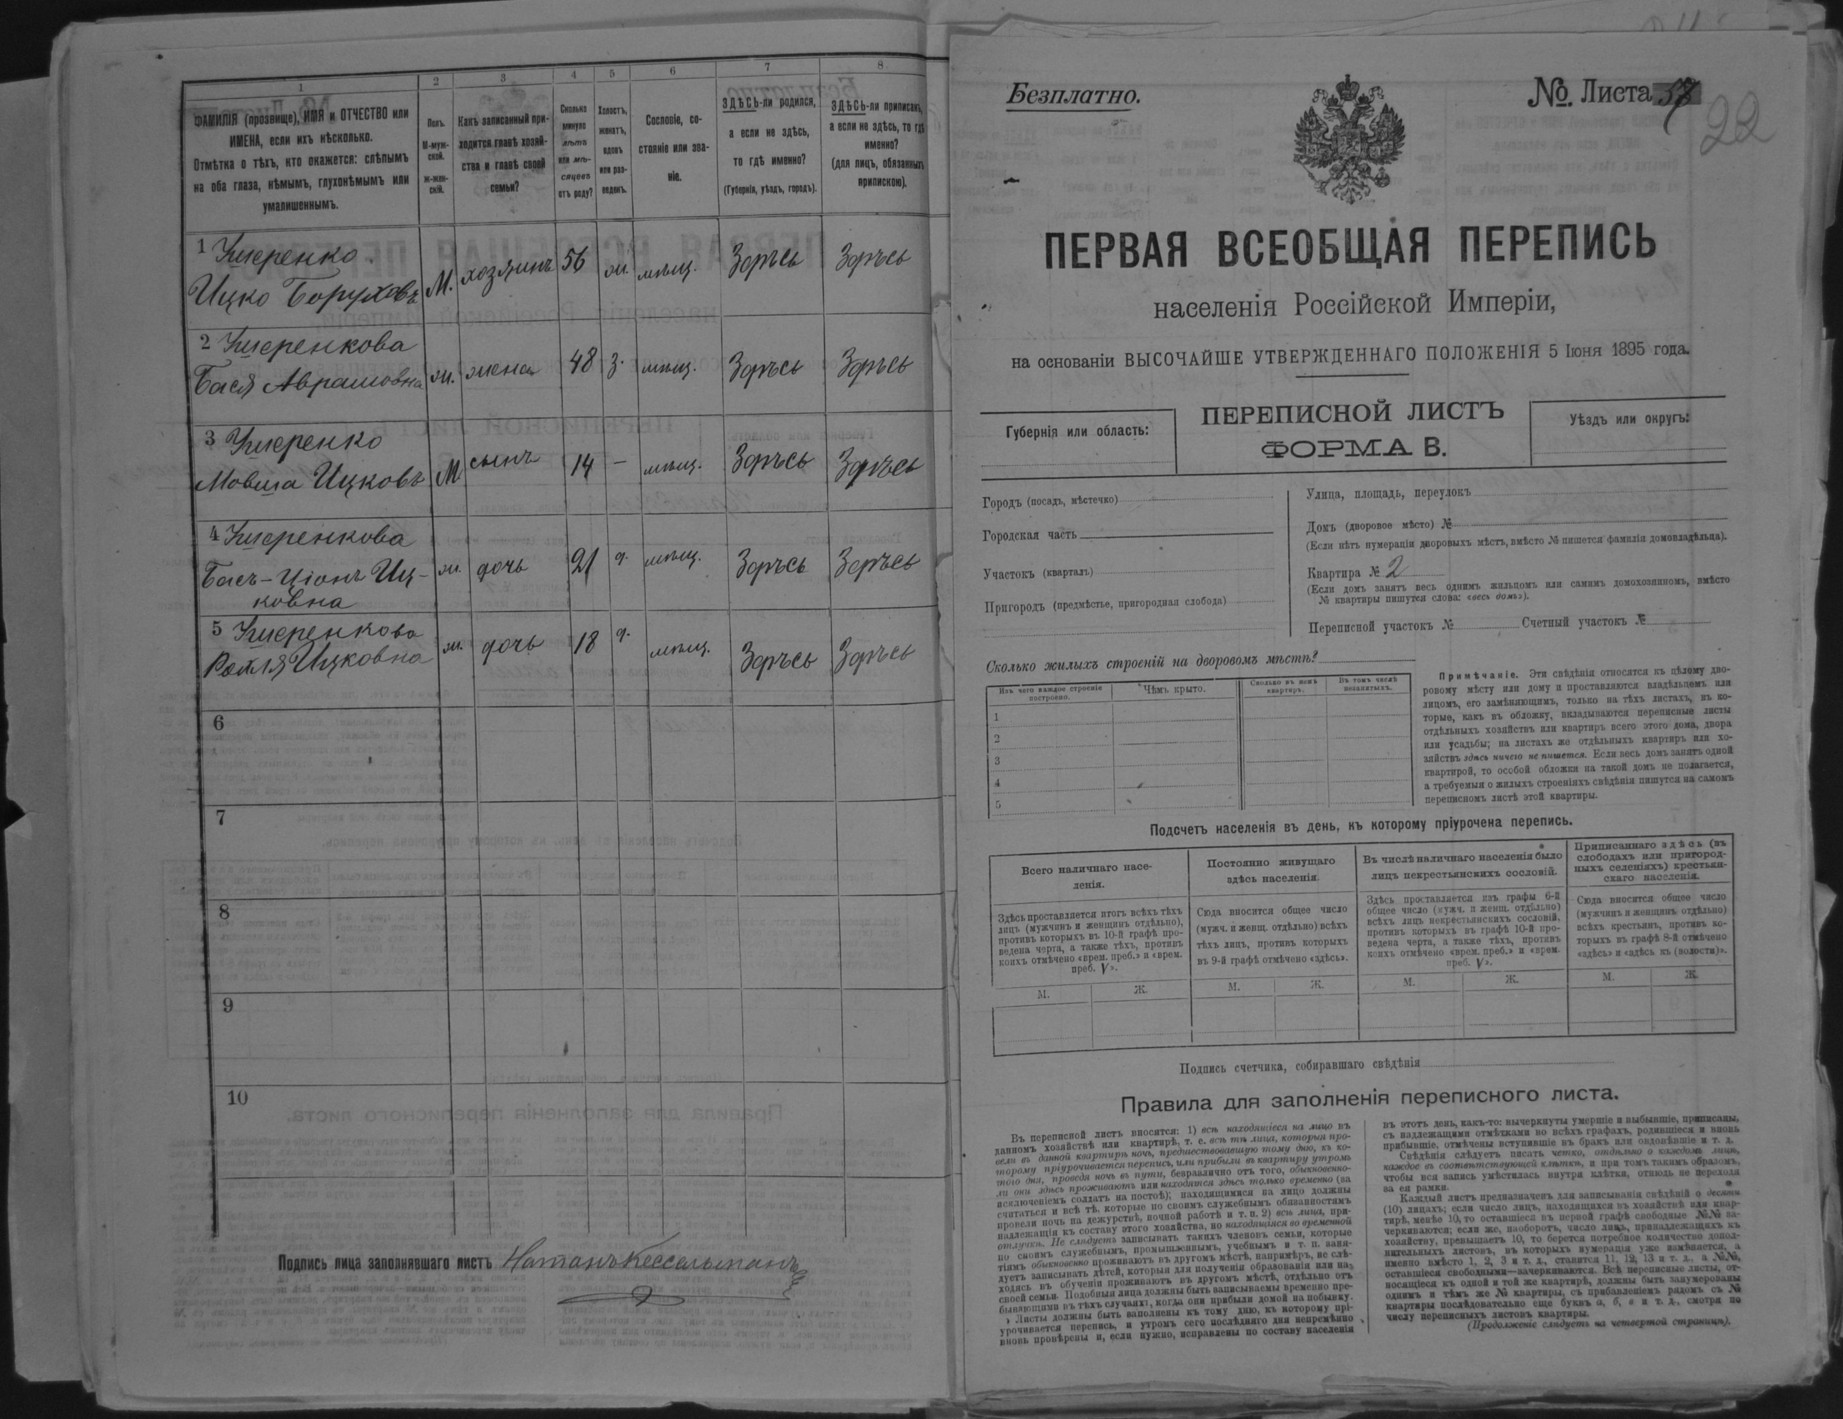 1
2
3
4
5
6
7
8
ФАМИЛІЯ (прозвище), ИМЯ и ОТЧЕСТВО или
ИМЕНА, если ихъ нѣсколько.
Отмѣтка о тѣхъ, кто окажется: слѣпымъ
на оба глаза, нѣмымъ, глухонѣмымъ или
умалишеннымъ.
Полъ.
М-муж-
ской.
Ж-жен-
скій.
Какъ записанный при-
ходится главѣ хозяй-
ства и главѣ своей
семьи?
Сколько
минуло
лѣтъ
или мѣ-
сяцевъ
отъ роду?
Холостъ,
женатъ,
вдовъ
или раз-
веденъ.
Сословіе, со-
стояніе или зва-
ніе.
ЗДѢСЬ-ли родился,
а если не здѣсь,
то гдѣ именно?
(Губернія, уѣздъ, городъ).
ЗДѢСЬ-ли приписанъ,
а если не здѣсь, то гдѣ
именно?
(для лицъ, обязанныхъ
припискою).
1 Ушеренко
Ицко Боруховъ М. хозяинъ 56 ж. мѣщ. Здѣсь Здѣсь
2 Ушеренкова
Бася Аврамовна ж. жена 48 з. мѣщ. Здѣсь Здѣсь
3 Ушеренко
Мовша Ицковъ М сынъ 14 — мѣщ. Здѣсь Здѣсь
4 Ушеренкова
Бась-Ціонъ Иц-
ковна ж. дочь 21 д. мѣщ. Здѣсь Здѣсь
5 Ушеренкова
Рейля Ицковна ж. дочь 18 д. мѣщ. Здѣсь Здѣсь
6
7
8
9
10
Подпись лица заполнявшаго листъ Натанъ Кессельманъ
Безплатно.
№ Листа
22
ПЕРВАЯ ВСЕОБЩАЯ ПЕРЕПИСЬ
населенія Россійской Имперіи,
на основаніи ВЫСОЧАЙШЕ УТВЕРЖДЕННАГО ПОЛОЖЕНІЯ 5 Іюня 1895 года.
Губернія или область:
ПЕРЕПИСНОЙ ЛИСТЪ
ФОРМА В.
Уѣздъ или округъ:
Городъ (посадъ, мѣстечко)
Городская часть
Участокъ (кварталъ)
Пригородъ (предмѣстье, пригородная слобода)
Улица, площадь, переулокъ
Домъ (дворовое мѣсто) №
(Если нѣтъ нумераціи дворовыхъ мѣстъ, вмѣсто № пишется фамилія домовладѣльца).
Квартира № 2
(Если домъ занятъ весь однимъ жильцомъ или самимъ домохозяиномъ, вмѣсто
№ квартиры пишутся слова: «весь домъ»).
Переписной участокъ № Счетный участокъ №
Сколько жилыхъ строеній на дворовомъ мѣстѣ?
Изъ чего каждое строеніе
построено.
Чѣмъ крыто.
Сколько въ немъ
квартиръ.
Въ томъ числѣ
незанятыхъ.
1
2
3
4
5
Примѣчаніе. Эти свѣдѣнія относятся къ цѣлому дво-
ровому мѣсту или дому и проставляются владѣльцемъ или
лицомъ, его замѣняющимъ, только на тѣхъ листахъ, въ ко-
торые, какъ въ обложку, вкладываются переписные листы
отдѣльныхъ хозяйствъ или квартиръ всего этого дома, двора
или усадьбы; на листахъ же отдѣльныхъ квартиръ или хо-
зяйствъ здѣсь ничего не пишется. Если весь домъ занятъ одной
квартирой, то особой обложки на такой домъ не полагается,
а требуемыя о жилыхъ строеніяхъ свѣдѣнія пишутся на самомъ
переписномъ листѣ этой квартиры.
Подсчетъ населенія въ день, къ которому пріурочена перепись.
Всего наличнаго насе-
ленія.
Здѣсь проставляется итогъ всѣхъ тѣхъ
лицъ (мужчинъ и женщинъ отдѣльно),
противъ которыхъ въ 10-й графѣ про-
ведена черта, а также тѣхъ, противъ
коихъ отмѣчено «врем. преб.» и «врем.
преб. V».
Постоянно живущаго
здѣсь населенія.
Сюда вносится общее число
(мужч. и женщ. отдѣльно) всѣхъ
тѣхъ лицъ, противъ которыхъ
въ 9-й графѣ отмѣчено «здѣсь».
Въ числѣ наличнаго населенія было
лицъ некрестьянскихъ сословій.
Здѣсь проставляется изъ графы 6-й
общее число (мужч. и женщ. отдѣльно)
всѣхъ лицъ некрестьянскихъ сословій,
противъ которыхъ въ графѣ 10-й про-
ведена черта, а также тѣхъ, противъ
коихъ отмѣчено «врем. преб.» и «врем.
преб. V».
Приписаннаго здѣсь (въ
слободахъ или пригород-
ныхъ селеніяхъ) крестьян-
скаго населенія.
Сюда вносится общее число
(мужчинъ и женщинъ отдѣльно)
всѣхъ крестьянъ, противъ ко-
торыхъ въ графѣ 8-й отмѣчено
«здѣсь» и «здѣсь къ (волости)».
М. Ж. М. Ж. М. Ж. М. Ж.
Подпись счетчика, собиравшаго свѣдѣнія
Правила для заполненія переписного листа.
Въ переписной листъ вносятся: 1) всѣ находящіеся на лицо въ
данномъ хозяйствѣ или квартирѣ, т. е. всѣ тѣ лица, которыя про-
вели въ данной квартирѣ ночь, предшествовавшую тому дню, къ ко-
торому пріурочивается перепись, или прибыли въ квартиру утромъ
того дня, проведя ночь въ пути, безразлично отъ того, обыкновенно-
ли они здѣсь проживаютъ или находятся здѣсь только временно (за
исключеніемъ солдатъ на постоѣ); находящимися на лицо должны
считаться и всѣ тѣ, которые по своимъ служебнымъ обязанностямъ
провели ночь на дежурствѣ, ночной работѣ и т. п. 2) всѣ лица, при-
надлежащія къ составу этого хозяйства, но находящіяся во временной
отлучкѣ. Не слѣдуетъ записывать такихъ членовъ семьи, которые
по своимъ служебнымъ, промышленнымъ, учебнымъ и т. п. заня-
тіямъ обыкновенно проживаютъ въ другомъ мѣстѣ, напримѣръ, не слѣ-
дуетъ записывать дѣтей, которыя для полученія образованія или на-
ходясь въ обученіи проживаютъ въ другомъ мѣстѣ, отдѣльно отъ
своей семьи. Подобныя лица должны быть записываемы временно пре-
бывающими въ тѣхъ случаяхъ, когда они прибыли домой на побывку.
Листы должны быть заполнены къ тому дню, къ которому прі-
урочивается перепись, и утромъ сего послѣдняго дня непремѣнно
вновь провѣрены и, если нужно, исправлены по составу населенія
въ этотъ день, какъ-то: вычеркнуты умершіе и выбывшіе, приписаны,
съ надлежащими отмѣтками во всѣхъ графахъ, родившіеся и вновь
прибывшіе, отмѣчены вступившіе въ бракъ или овдовѣвшіе и т. д.
Свѣдѣнія слѣдуетъ писать четко, отдѣльно о каждомъ лицѣ,
каждое въ соотвѣтствующей клѣткѣ, и при томъ такимъ образомъ,
чтобы вся запись умѣстилась внутри клѣтки, отнюдь не переходя
за ея рамки.
Каждый листъ предназначенъ для записыванія свѣдѣній о десяти
(10) лицахъ; если число лицъ, находящихся въ хозяйствѣ или квар-
тирѣ, менѣе 10, то оставшіеся въ первой графѣ свободные №№ за-
черкиваются; если же, наоборотъ, число лицъ, принадлежащихъ къ
хозяйству, превышаетъ 10, то берется потребное количество допол-
нительныхъ листовъ, въ которыхъ нумерація уже измѣняется, а
именно вмѣсто 1, 2, 3 и т. д., ставится 11, 12, 13 и т. д., а №№,
оставшіеся свободными—зачеркиваются. Всѣ переписные листы, от-
носящіеся къ одной и той же квартирѣ, должны быть занумерованы
однимъ и тѣмъ же № квартиры, съ прибавленіемъ рядомъ съ №
квартиры послѣдовательно еще буквъ а, б, в и т. д., смотря по
числу переписныхъ листовъ квартиры.
(Продолженіе слѣдуетъ на четвертой страницѣ).